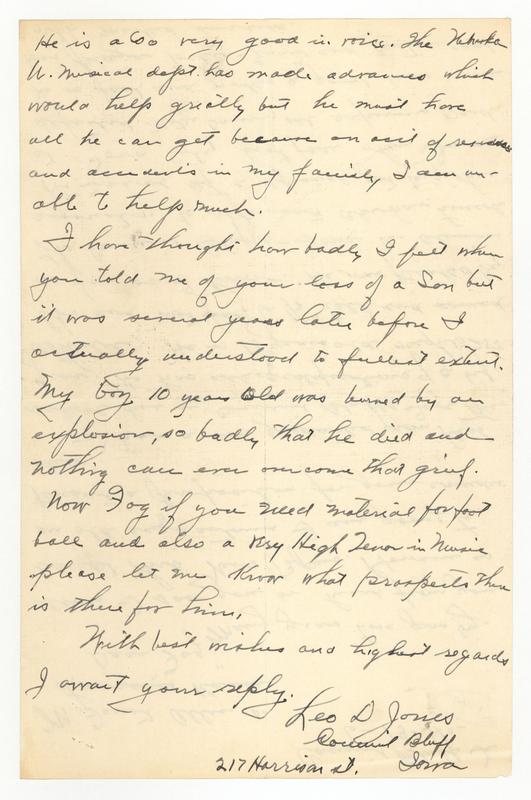 He is also very good in voice. The Nebraska
U. Musical dept. has made advances which
would help greatly but he must have
all he can get because on acct of
and accidents in my family I am un-
able to help much.
I have thought how badly I felt when
you told me of your loss of a Son but
it was several years later before I
actually understood to fullest extent.
My boy 10 years Old was burned by an
explosion, so badly that he died and
nothing can ever overcome that grief.
Now Fog if you need material for foot
ball and also a very High Tenor in Music
please let me know what prospects there
is there for him,
With best wishes and highest regards
I await your reply.
Leo D Jones
Council Bluff
217 Harrison st. Iowa